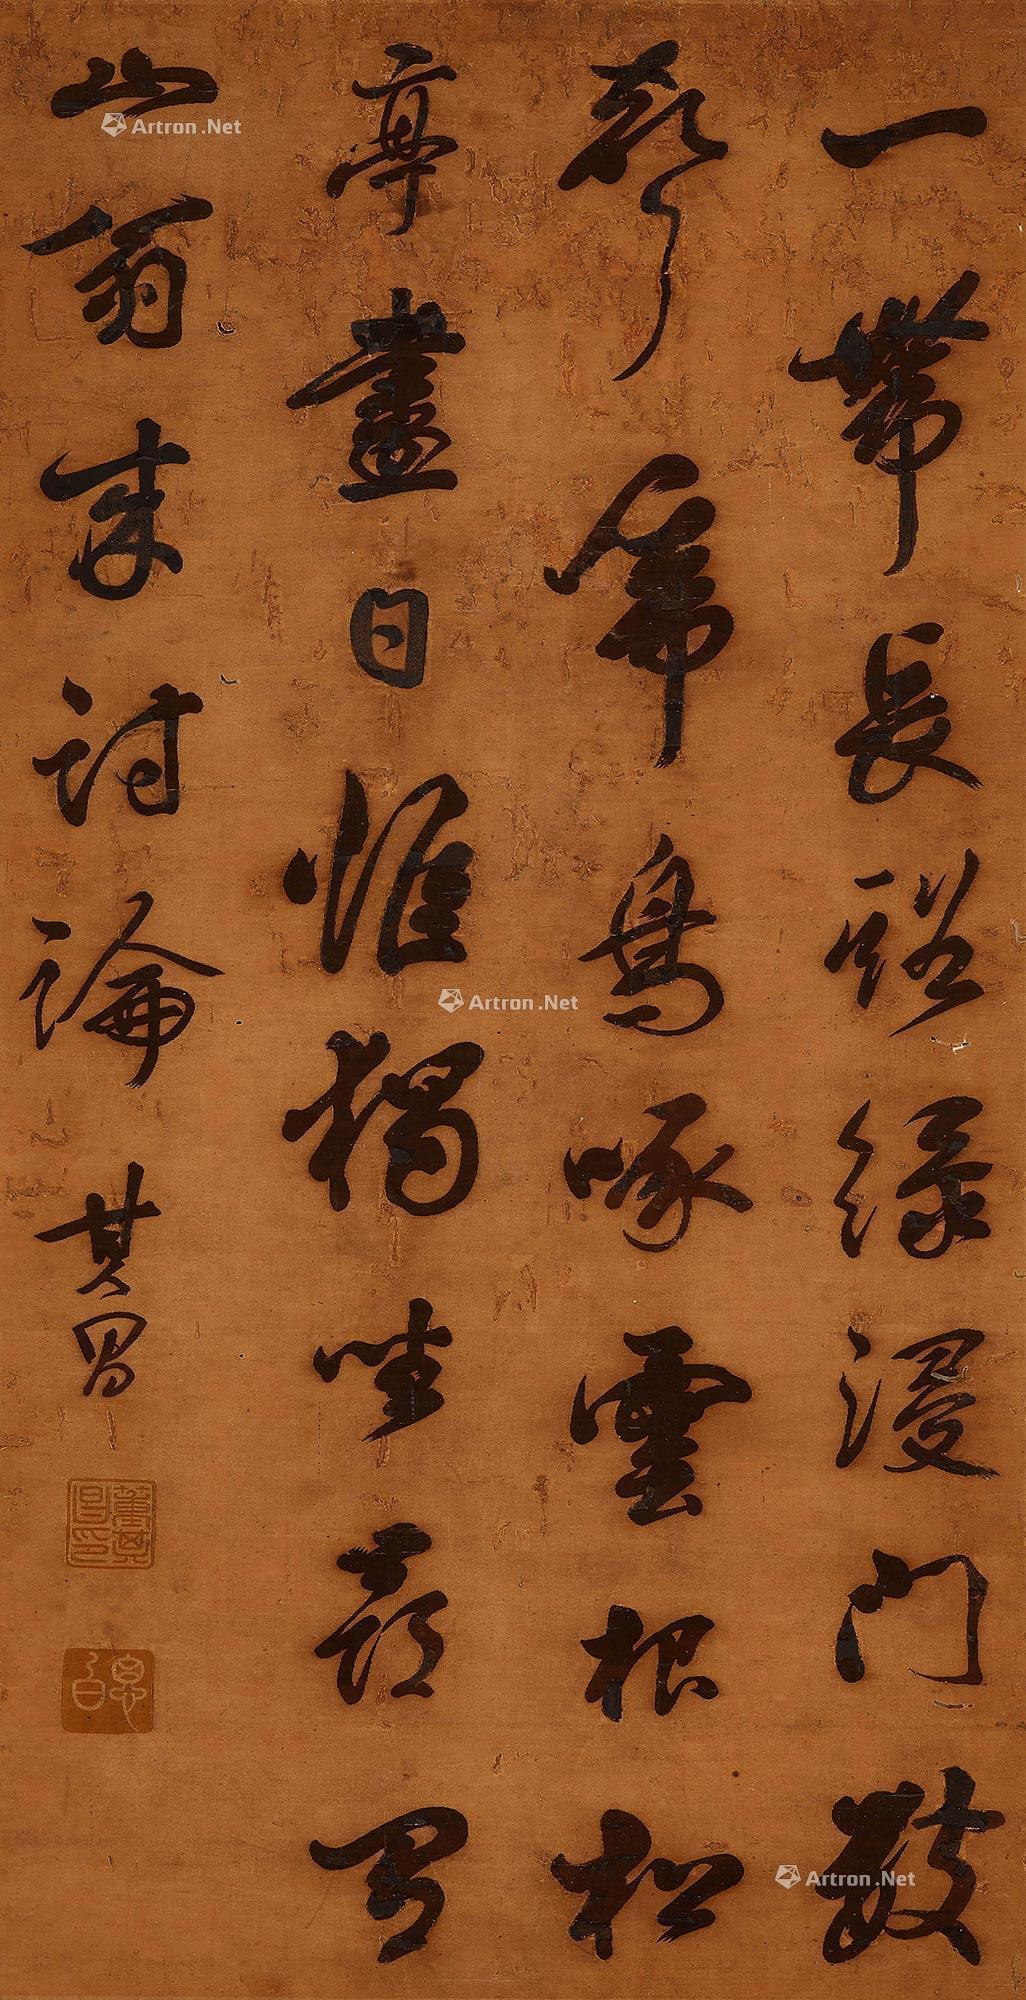 一帶長谿綠漫門數
聲鳥啄雲根松
亭盡日惟獨坐
山翁來討論
其昌
董其昌印
思白
Artron.Net
Artron.Net
Artron.Net